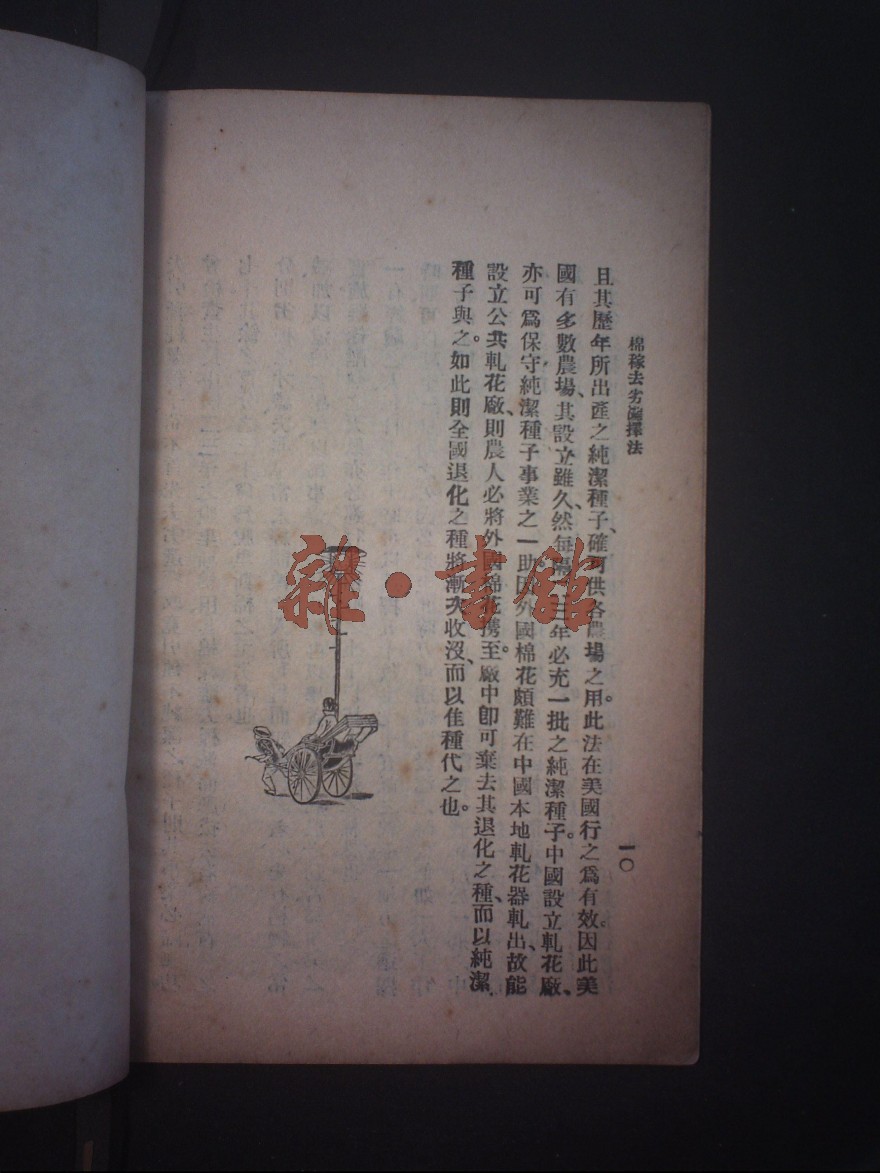 棉稼去劣選擇法
一〇
且其歷年所出產之純潔種子、確可供各農場之用。此法在美國行之爲有效。因此美
國有多數農場、其設立雖久、然每隔二三年必充一批之純潔種子。中國設立軋花廠、
亦可爲保守純潔種子事業之一助。因外國棉花頗難在中國本地軋花器軋出、故能
設立公共軋花廠、則農人必將外國棉花攜至。廠中卽可棄去其退化之種、而以純潔
種子與之。如此則全國退化之種將漸次收沒、而以佳種代之也。
雜·書館